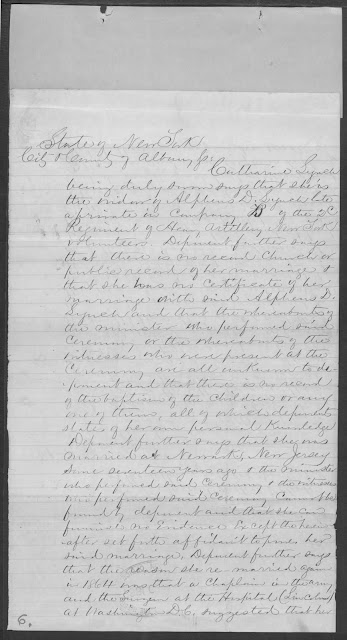 State of New York
City & County of Albany ss
Catharine Lynch
being duly sworn says that she is
the widow of Alpheus D. Lynch late
a private in Company B of the 2d
Regiment of Heavy Artillery New York
Volunteers. Deponent further says
that there is no record Church or
public record of her marriage &
that she has no certificate of her
marriage with said Alpheus D.
Lynch and that the whereabouts of
the minister who performed said
Ceremony or the whereabouts of the
witnesses who were present at the
Ceremony are all unknown to de-
ponent and that there is no record
of the baptism of the children or any
one of them, all of which deponent
states of her own personal knowledge
Deponent further says that she was
married at Newark, New Jersey
some seventeen years ago & the minister
who performed said Ceremony & the witnesses
who performed said Ceremony cannot be
found by deponent and that she can
furnish no Evidence Except the herein
after set forth affidavit to prove her
said marriage. Deponent further says
that the reason she re-married again
in 1864 was that a Chaplain in the army
and the Surgeon at the Hospital (Lincoln)
at Washington D.C. suggested that her
6.